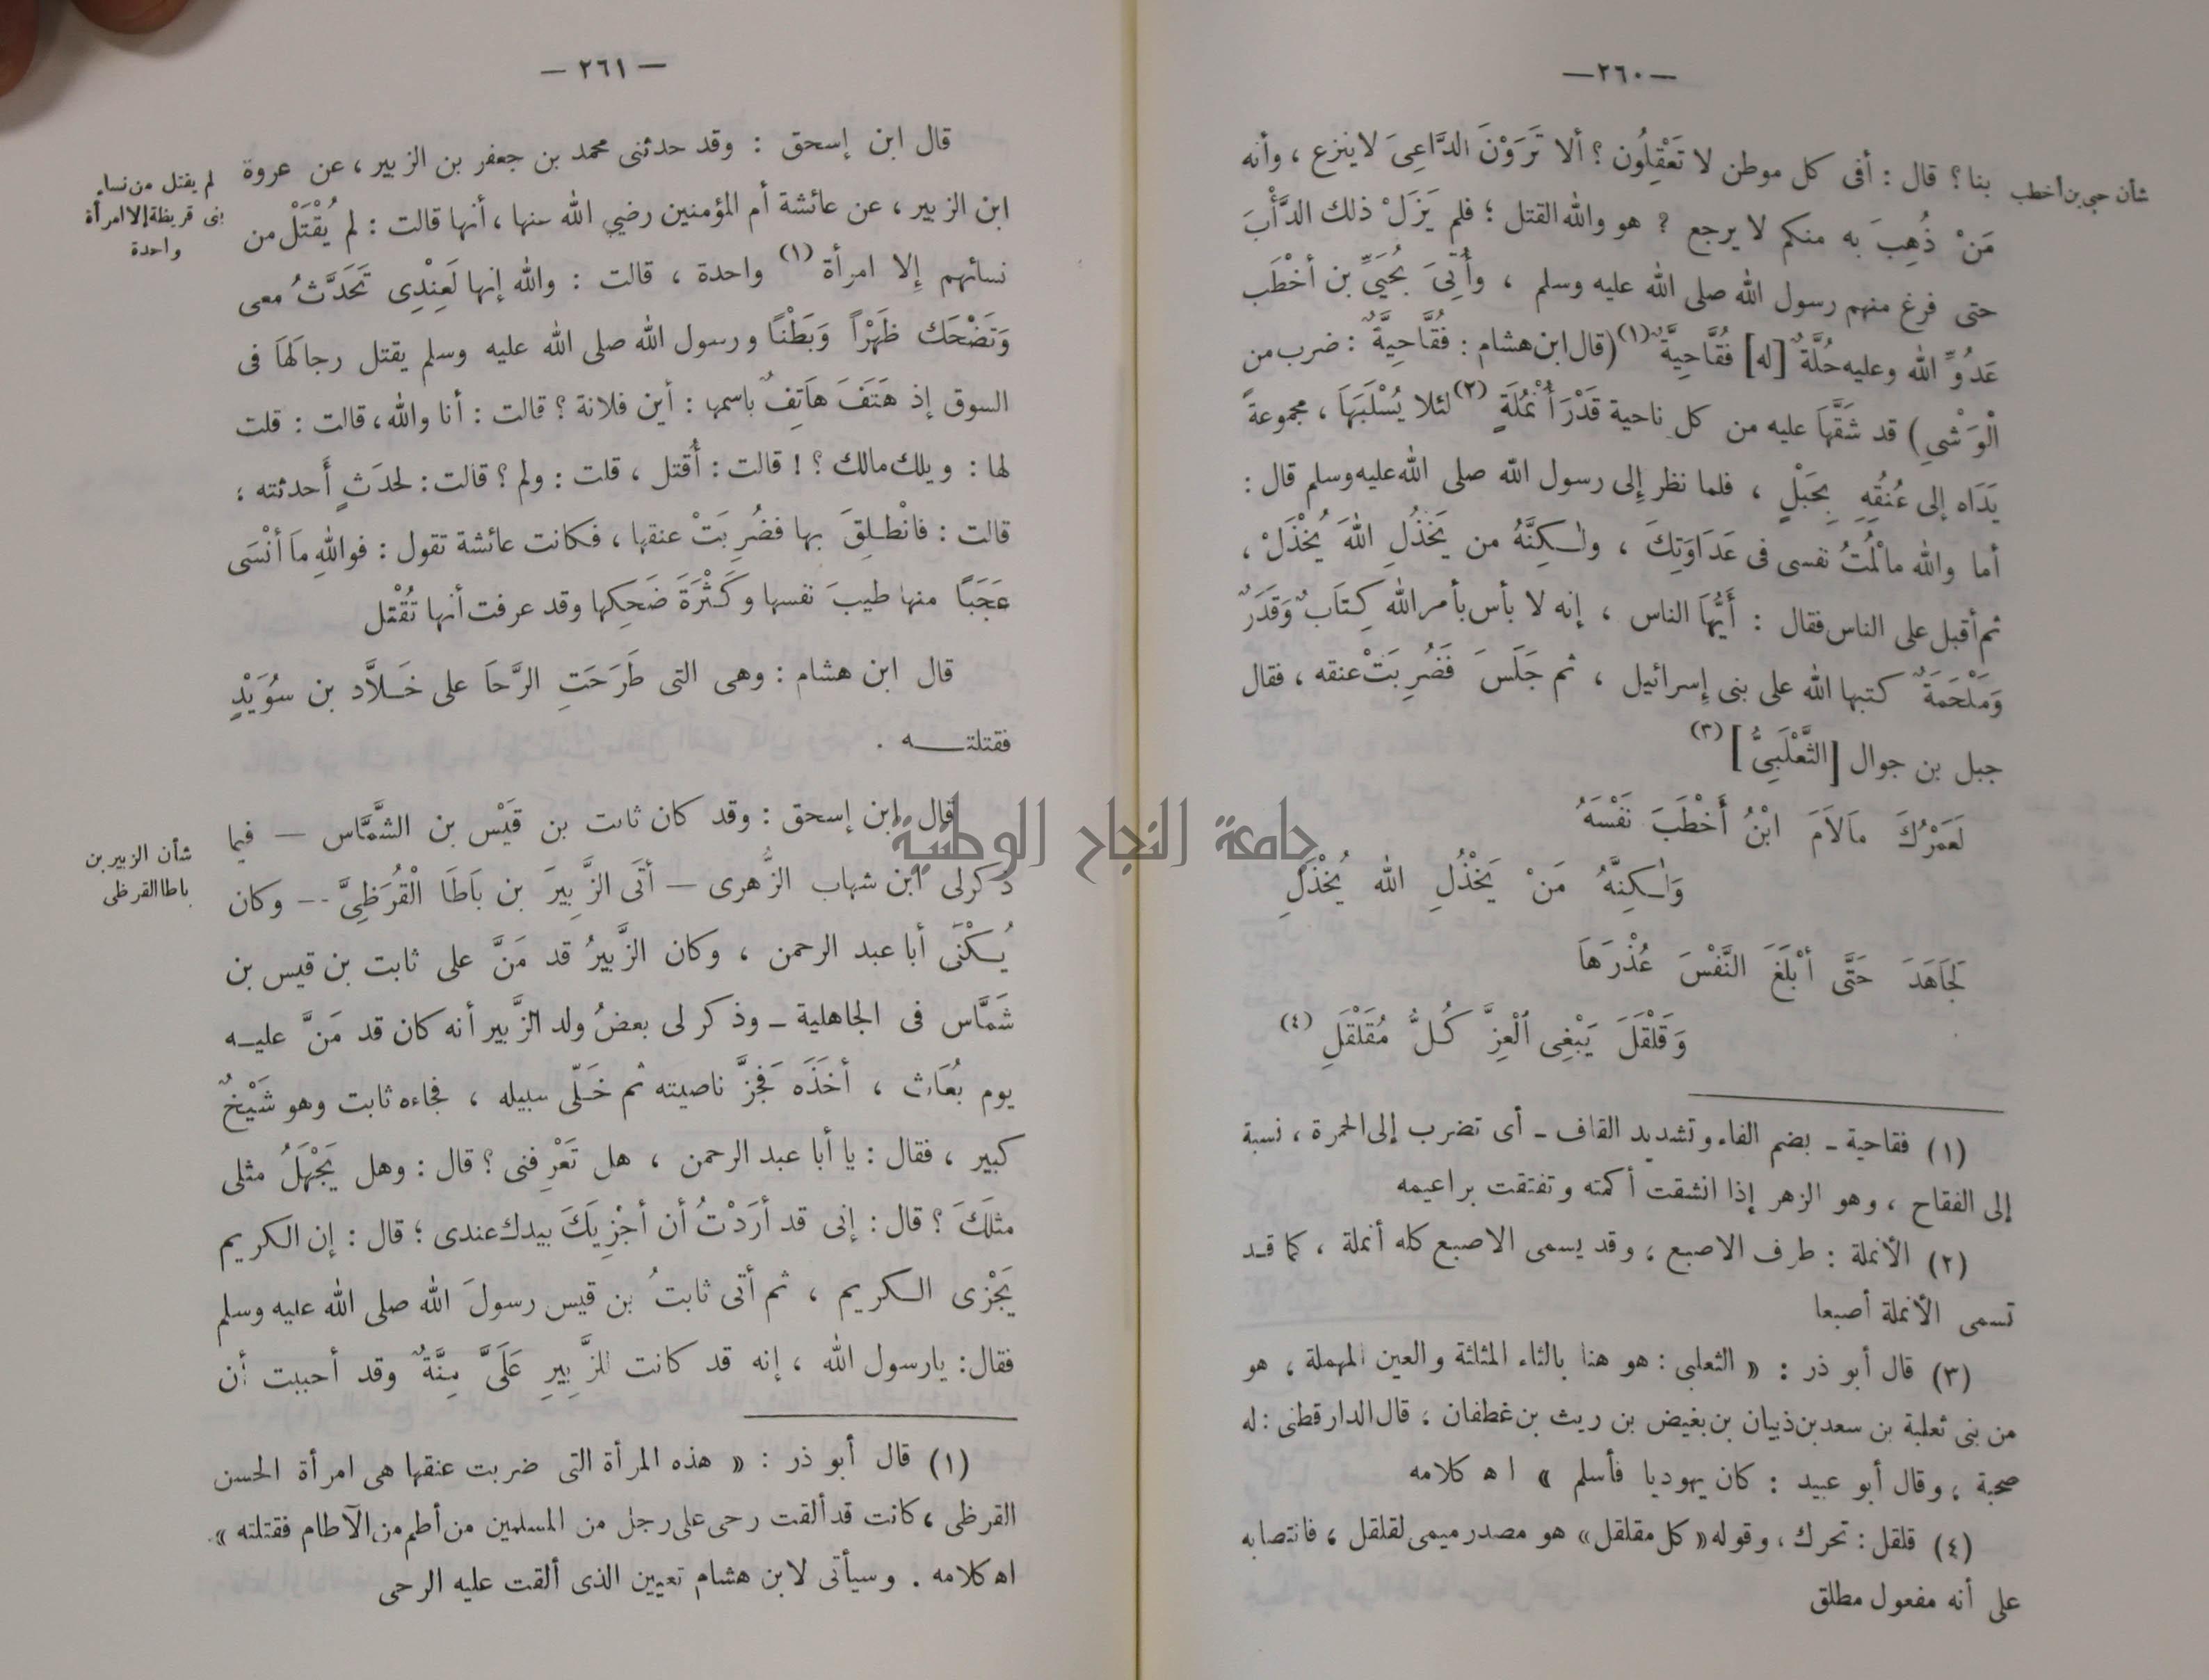 —٢٦٠—
شأن حيى بن أخطب
بنا؟ قال: أفى كل موطن لا تَعْقِلُون؟ ألا تَرَوْنَ الدَّاعِىَ لا ينزع، وأنه
مَنْ ذُهِبَ به منكم لا يرجع؟ هو والله القتل؛ فلم يَزَلْ ذلك الدَّأْبَ
حتى فرغ منهم رسول الله صلى الله عليه وسلم، وأُتِىَ بحُيَىِّ بن أخْطَب
عَدُوِّ الله وعليه حُلَّةٌ [له] فُقَّاحِيَّةٌ (١) (قال ابن هشام: فُقَّاحِيَّةٌ: ضرب من
الْوَشْىِ) قد شَقَّهَا عليه من كل ناحية قَدْرَ أُنْمُلَةٍ (٢) لئلا يُسْلَبَهَا، مجموعةً
يَدَاه إلى عُنُقِهِ بِحَبْلٍ، فلما نظر إلى رسول الله صلى الله عليه وسلم قال:
أما والله ما لُمْتُ نفسى فى عَدَاوَتِكَ، ولٰكِنَّهُ من يَخْذُلِ اللهَ يُخْذَلْ،
ثم أقبل على الناس فقال: أَيُّهَا الناس، إنه لا بأس بأمر الله كِتَابٌ وَقَدَرٌ
وَمَلْحَمَةٌ كتبها الله على بنى إسرائيل، ثم جَلَسَ فَضُرِبَتْ عنقه، فقال
جبل بن جوال [الثَّعْلَبِىُّ] (٣)
لَعَمْرُكَ مَا لَامَ ابْنُ أَخْطَبَ نَفْسَهُ
وَلٰكِنَّهُ مَنْ يَخْذُلِ الله يُخْذَلِ
لَجَاهَدَ حَتَّى أَبْلَغَ النَّفْسَ عُذْرَهَا
وَقَلْقَلَ يَبْغِى الْعِزَّ كُلَّ مُقَلْقَلِ (٤)
(١) فقاحية ـ بضم الفاء وتشديد القاف ـ أى تضرب إلى الحمرة، نسبة
إلى الفقاح، وهو الزهر إذا انشقت أكمته وتفتقت براعيمه
(٢) الأنملة: طرف الاصبع، وقد يسمى الاصبع كله أنملة، كما قد
تسمى الأنملة أصبعا
(٣) قال أبو ذر: « الثعلبى: هو هنا بالثاء المثلثة والعين المهملة، هو
من بنى ثعلبة بن سعد بن ذبيان بن بغيض بن ريث بن غطفان، قال الدارقطنى: له
صحبة، وقال أبو عبيد: كان يهوديا فأسلم » اه كلامه
(٤) قلقل: تحرك، وقوله « كل مقلقل » هو مصدر ميمى لقلقل، فانتصابه
على أنه مفعول مطلق
— ٢٦١ —
قال ابن إسحق: وقد حدثنى محمد بن جعفر بن الزبير، عن عروة
لم يقتل من نساء
بنى قريظة إلا امرأة
واحدة
ابن الزبير، عن عائشة أم المؤمنين رضي الله عنها، أنها قالت: لم يُقْتَلْ من
نسائهم إلا امرأة (١) واحدة، قالت: والله إنها لَعِنْدِى تَحَدَّثُ معى
وَتَضْحَك ظَهْراً وَبَطْنًا ورسول الله صلى الله عليه وسلم يقتل رجالَهَا فى
السوق إذ هَتَفَ هَاتِفٌ باسمها: أين فلانة؟ قالت: أنا والله، قالت: قلت
لها: ويلك مالك؟! قالت: أُقتل، قلت: ولم؟ قالت: لحدَثٍ أَحدثته؛
قالت: فانْطلِقَ بها فضُرِبَتْ عنقها، فكانت عائشة تقول: فواللهِ مَا أنْسَى
عَجَبًا منها طيبَ نفسها وكَثْرَةَ ضَحِكها وقد عرفت أنها تُقْتل
قال ابن هشام: وهى التى طَرَحَتِ الرَّحَا على خَلَّاد بن سُوَيْدٍ
فقتلته.
قال ابن إسحق: وقد كان ثابت بن قَيْس بن الشَّمَّاس — فيما
شأن الزبير بن
باطا القرظى
ذكر لى ابن شهاب الزُّهرى — أتَى الزَّبِيرَ بن بَاطَا الْقُرَظِىَّ -- وكان
يُكْنَى أبا عبد الرحمن، وكان الزَّبيرُ قد مَنَّ على ثابت بن قيس بن
شَمَّاس فى الجاهلية ـ وذكر لى بعضُ ولد الزَّبير أنه كان قد مَنَّ عليه
يوم بُعَاث، أخَذَه فَجزَّ ناصيته ثم خَلَّى سبيله، فجاءه ثابت وهو شَيْخٌ
كبير، فقال: يا أبا عبد الرحمن، هل تَعْرِفنى؟ قال: وهل يَجْهَلُ مثلى
مثلَكَ؟ قال: إنى قد أرَدْتُ أن أجْزِيَكَ بيدك عندى؛ قال: إن الكريم
يَجْزى الكريم، ثم أتى ثابتُ بن قيس رسولَ الله صلى الله عليه وسلم
فقال: يا رسول الله، إنه قد كانت للزَّبِيرِ عَلَىَّ مِنَّةٌ وقد أحببت أن
(١) قال أبو ذر: « هذه المرأة التى ضربت عنقها هى امرأة الحسن
القرظى، كانت قد ألقت رحى على رجل من المسلمين من أطم من الآطام فقتلته ».
اه كلامه. وسيأتى لابن هشام تعيين الذى ألقت عليه الرحى
جامعة النجاح الوطنية